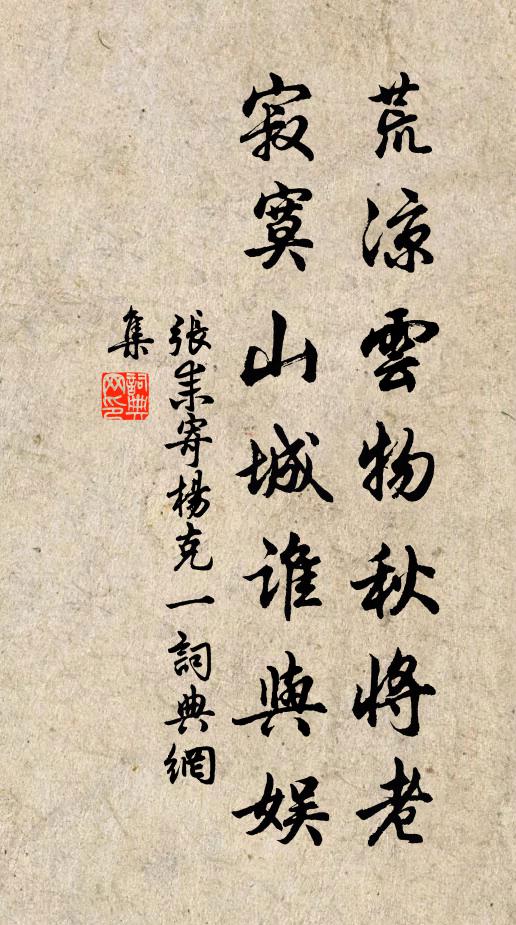 荒凉雲物秋將老
寂寞山城誰與娱
張耒寄楊克一詞典網
集
詞典
网印